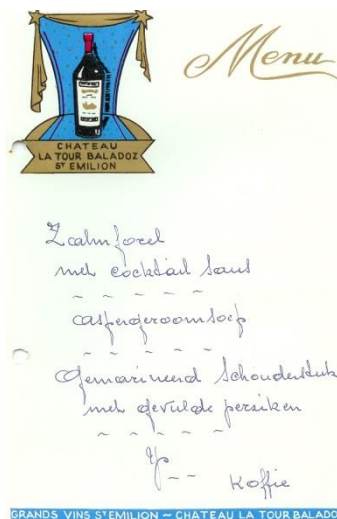 Menu
CHATEAU
LA TOUR BALADOZ
ST EMILION
Zalmforel
met cocktail saus
aspergeroomsoep
Gemarineerd Schouderstuk
met gevulde perziken
Ijs
Koffie
GRANDS VINS ST EMILION ~ CHATEAU LA TOUR BALADOZ